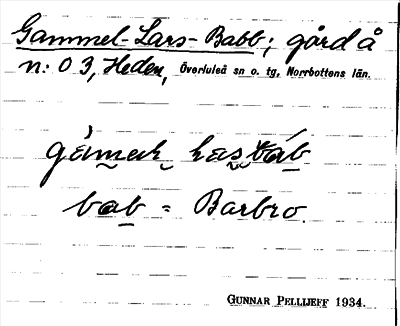 Gammel-Lars-Babb; gård å
n: o 3, Heden, Överluleå sn o. tg, Norrbottens län.
bab = Barbro.
GUNNAR PELLIJEFF 1934.